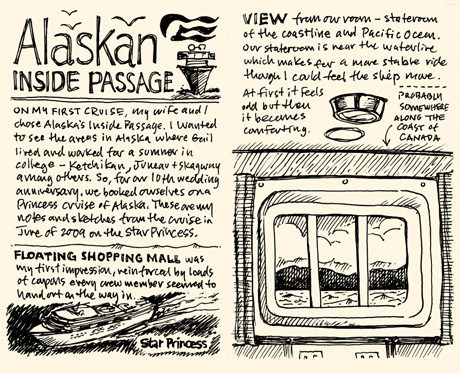 Alaskan
INSIDE PASSAGE
ON MY FIRST CRUISE, my wife and I
chose Alaska's Inside Passage. I wanted
to see the areas in Alaska where Gail
lived and worked for a summer in
college - Ketchikan, Juneau + Skagway
among others. So, for our 10th wedding
anniversary, we booked ourselves on a
Princess cruise of Alaska. These are my
notes and sketches from the cruise in
June of 2009 on the Star Princess.
FLOATING SHOPPING MALL was
my first impression, reinforced by loads
of coupons every crew member seemed to
hand out on the way in.
Star Princess
VIEW from our room - stateroom
of the coastline and Pacific Ocean.
Our stateroom is near the waterline
which makes for a more stable ride
though I could feel the ship move.
At first it feels
odd but then
it becomes
comforting.
PROBABLY
SOMEWHERE
ALONG THE
COAST OF
CANADA